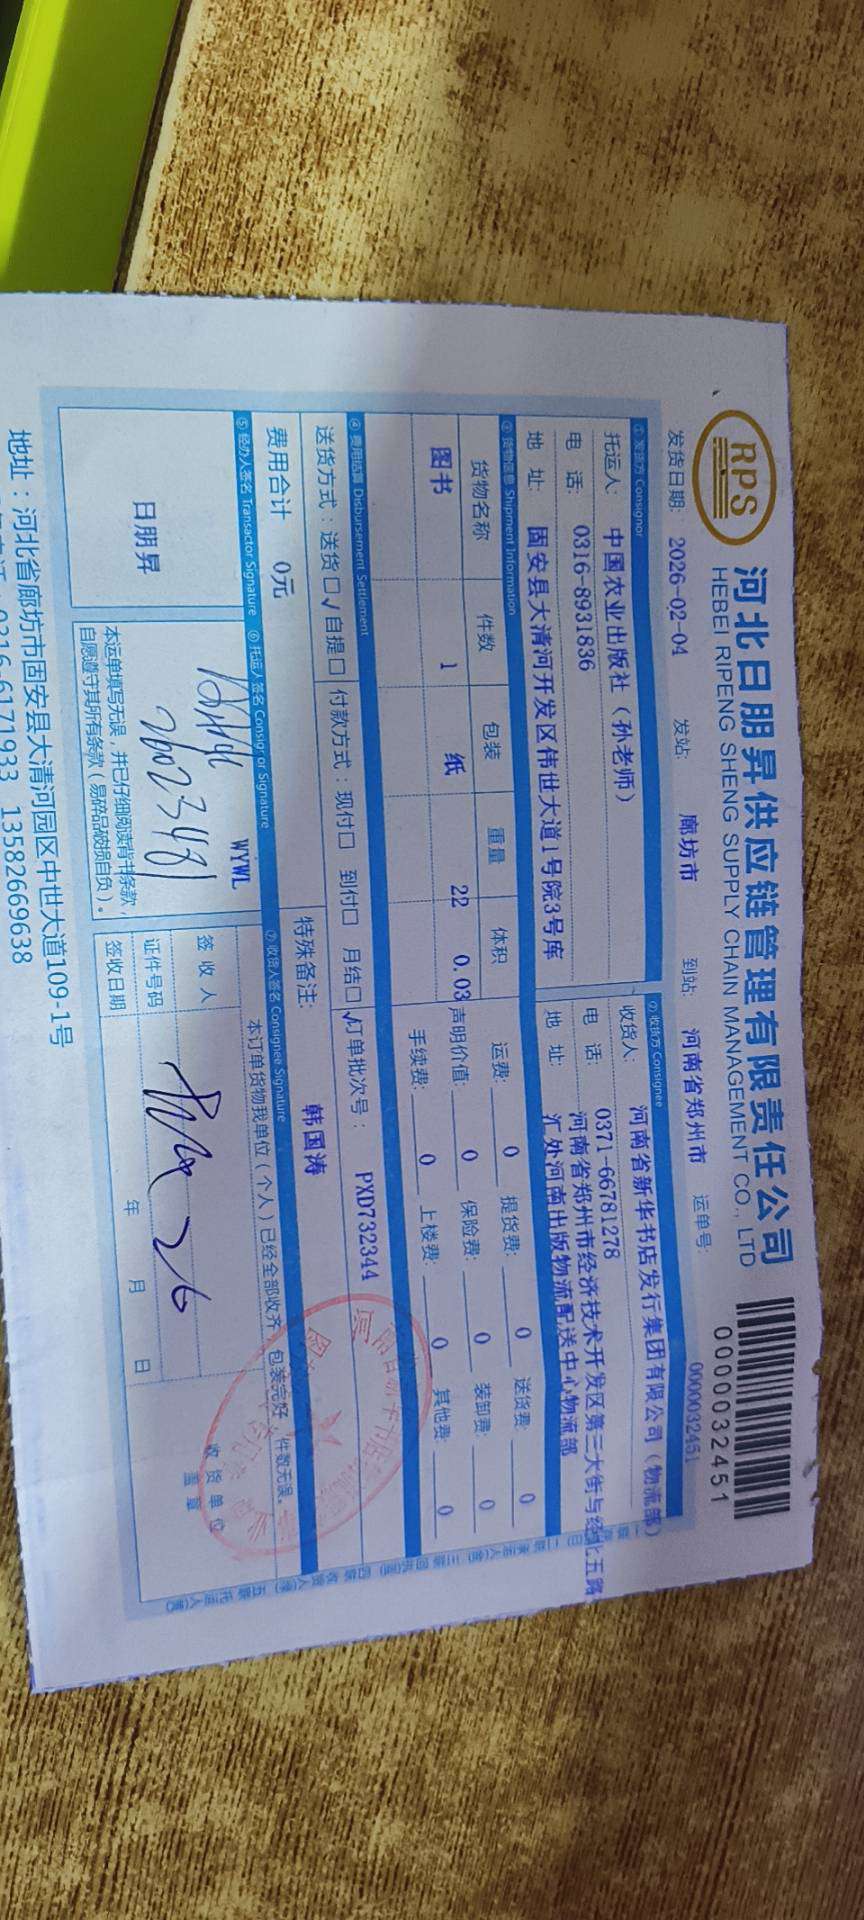 RPS
河北日朋昇供应链管理有限责任公司
HEBEI RIPENG SHENG SUPPLY CHAIN MANAGEMENT CO., LTD
0000032451
发货日期: 2026-02-04 发站: 廊坊市 到站: 河南省郑州市 运单号: 0000032451
① 发货方 Consignor
托运人: 中国农业出版社（孙老师）
电 话: 0316-8931836
地 址: 固安县大清河开发区伟世大道1号院3号库
② 收货方 Consignee
收货人: 河南省新华书店发行集团有限公司（物流部）
电 话: 0371-66781278
地 址: 河南省郑州市经济技术开发区第三大街与经北五路
汇处河南出版物流配送中心物流部
③ 货物信息 Shipment Information
货物名称 件数 包装 重量 体积
图书 1 纸 22 0.03
运费: 0 提货费: 0 送货费: 0
声明价值: 0 保险费: 0 装卸费: 0
手续费: 0 上楼费: 0 其他费: 0
④ 费用结算 Disbursement Settlement
送货方式：送货□√ 自提□ 付款方式：现付□ 到付□ 月结□√ 订单批次号： PXD732344
费用合计 0元 特殊备注: 韩国涛
⑤ 经办人签名 Transactor Signature
日朋昇
⑥ 托运人签名 Consignor Signature
WYWL
2602348
本运单填写无误，并已仔细阅读背书条款，
自愿遵守其所有条款（易碎品破损自负）。
⑦ 收货人签名 Consignee Signature
本订单货物我单位（个人）已经全部收齐 包装完好 件数无误。
签 收 人
证件号码
签收日期 年 月 日
收货单位
盖 章
地址：河北省廊坊市固安县大清河园区中世大道109-1号
0316-6171933 13582669638